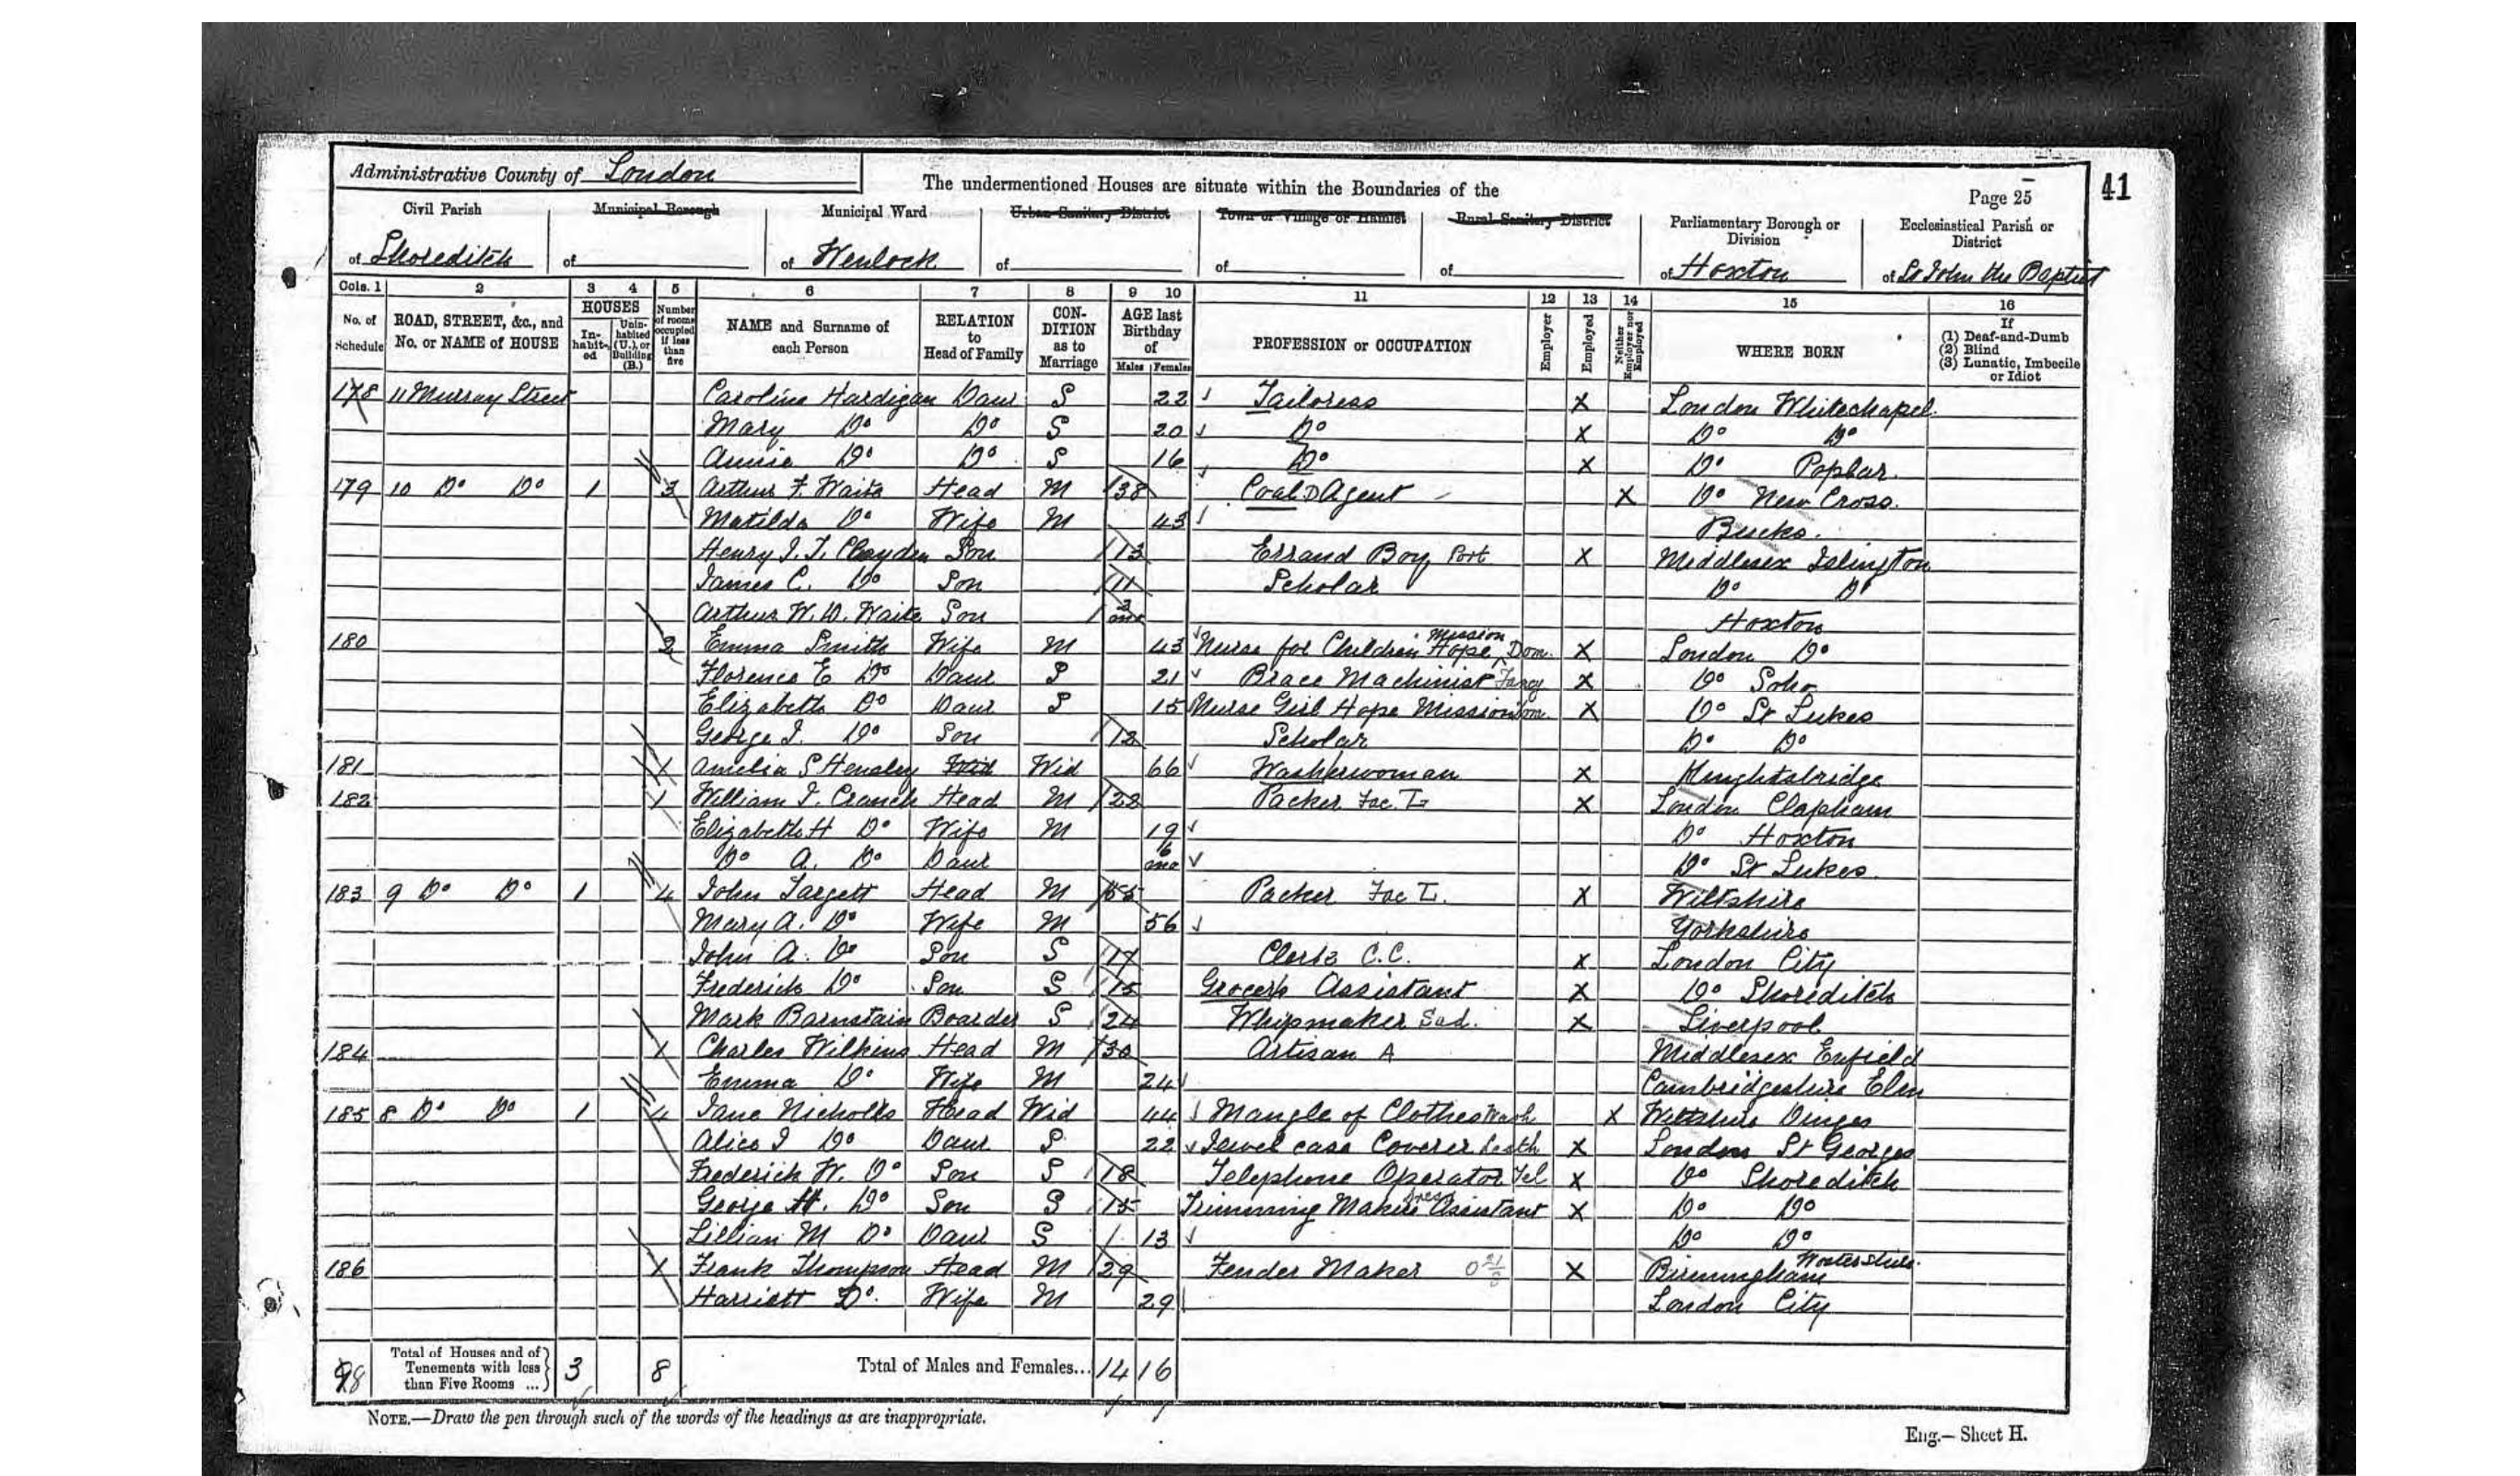 41
Administrative County of London
The undermentioned Houses are situate within the Boundaries of the
Page 25
Civil Parish Municipal Borough Municipal Ward Urban Sanitary District Town or Village or Hamlet Rural Sanitary District Parliamentary Borough or Division Ecclesiastical Parish or District
of Shoreditch of of Wenlock of of of of Hoxton of St John the Baptist
Cols. 1 2 3 4 5 6 7 8 9 10 11 12 13 14 15 16
No. of Schedule ROAD, STREET, &c., and No. or NAME of HOUSE HOUSES In-habit-ed Unin-habited (U.), or Building (B.) Number of rooms occupied if less than five NAME and Surname of each Person RELATION to Head of Family CON-DITION as to Marriage AGE last Birthday of Males Females PROFESSION or OCCUPATION Employer Employed Neither Employer nor Employed WHERE BORN If (1) Deaf-and-Dumb (2) Blind (3) Lunatic, Imbecile or Idiot
178 11 Murray Street Caroline Hardigan Daur S 22 Tailoress X London Whitechapel
Mary Do Do S 20 Do X Do Do
Annie Do Do S 16 Do X Do Poplar
179 10 Do Do 1 3 Arthur F. Waite Head M 38 Coal Agent X Do New Cross
Matilda Do Wife M 43 Bucks.
Henry J. T. Cloyden Son 13 Errand Boy Port X Middlesex Islington
James C. Do Son 11 Scholar Do Do
Arthur W. D. Waite Son 3 mo Hoxton
180 2 Emma Smith Wife M 43 Nurse for Children Hope Mission Dom. X London Do
Florence E Do Daur S 21 Brace Machinist Fancy X Do Soho
Elizabeth Do Daur S 15 Nurse Girl Hope Mission Dom. X Do St Lukes
George J. Do Son 12 Scholar Do Do
181 1 Amelia S Hensley Wid Wid 66 Washerwoman X Knightsbridge
182 1 William J. Cranch Head M 22 Packer Fac. L X London Clapham
Elizabeth H Do Wife M 19 Do Hoxton
Do A. Do Daur 6 mo Do St Lukes
183 9 Do Do 1 4 John Targett Head M 55 Packer Fac L. X Wiltshire
Mary A. Do Wife M 56 Yorkshire
John A. Do Son S 17 Clerk C.C. X London City
Frederick Do Son S 15 Grocers Assistant X Do Shoreditch
Mark Barnstain Boarder S 24 Whipmaker Sad. X Liverpool
184 1 Charles Wilkins Head M 30 Artisan A Middlesex Enfield
Emma Do Wife M 24 Cambridgeshire Elm
185 8 Do Do 1 4 Jane Nicholls Head Wid 44 Mangle of Clothes Wash X Wiltshire
Alice J Do Daur S 22 Jewel case Coverer Leath X London St Georges
Frederick W. Do Son S 18 Telephone Operator Tel X Do Shoreditch
George H. Do Son S 15 Trimming Makers Dress Assistant X Do Do
Lillian M Do Daur S 13 Do Do
186 1 Frank Thompson Head M 29 Fender Maker X Birmingham
Harriett Do. Wife M 29 London City
98 Total of Houses and of Tenements with less than Five Rooms ... 3 8 Total of Males and Females... 14 16
NOTE.—Draw the pen through such of the words of the headings as are inappropriate.
Eng.— Sheet H.